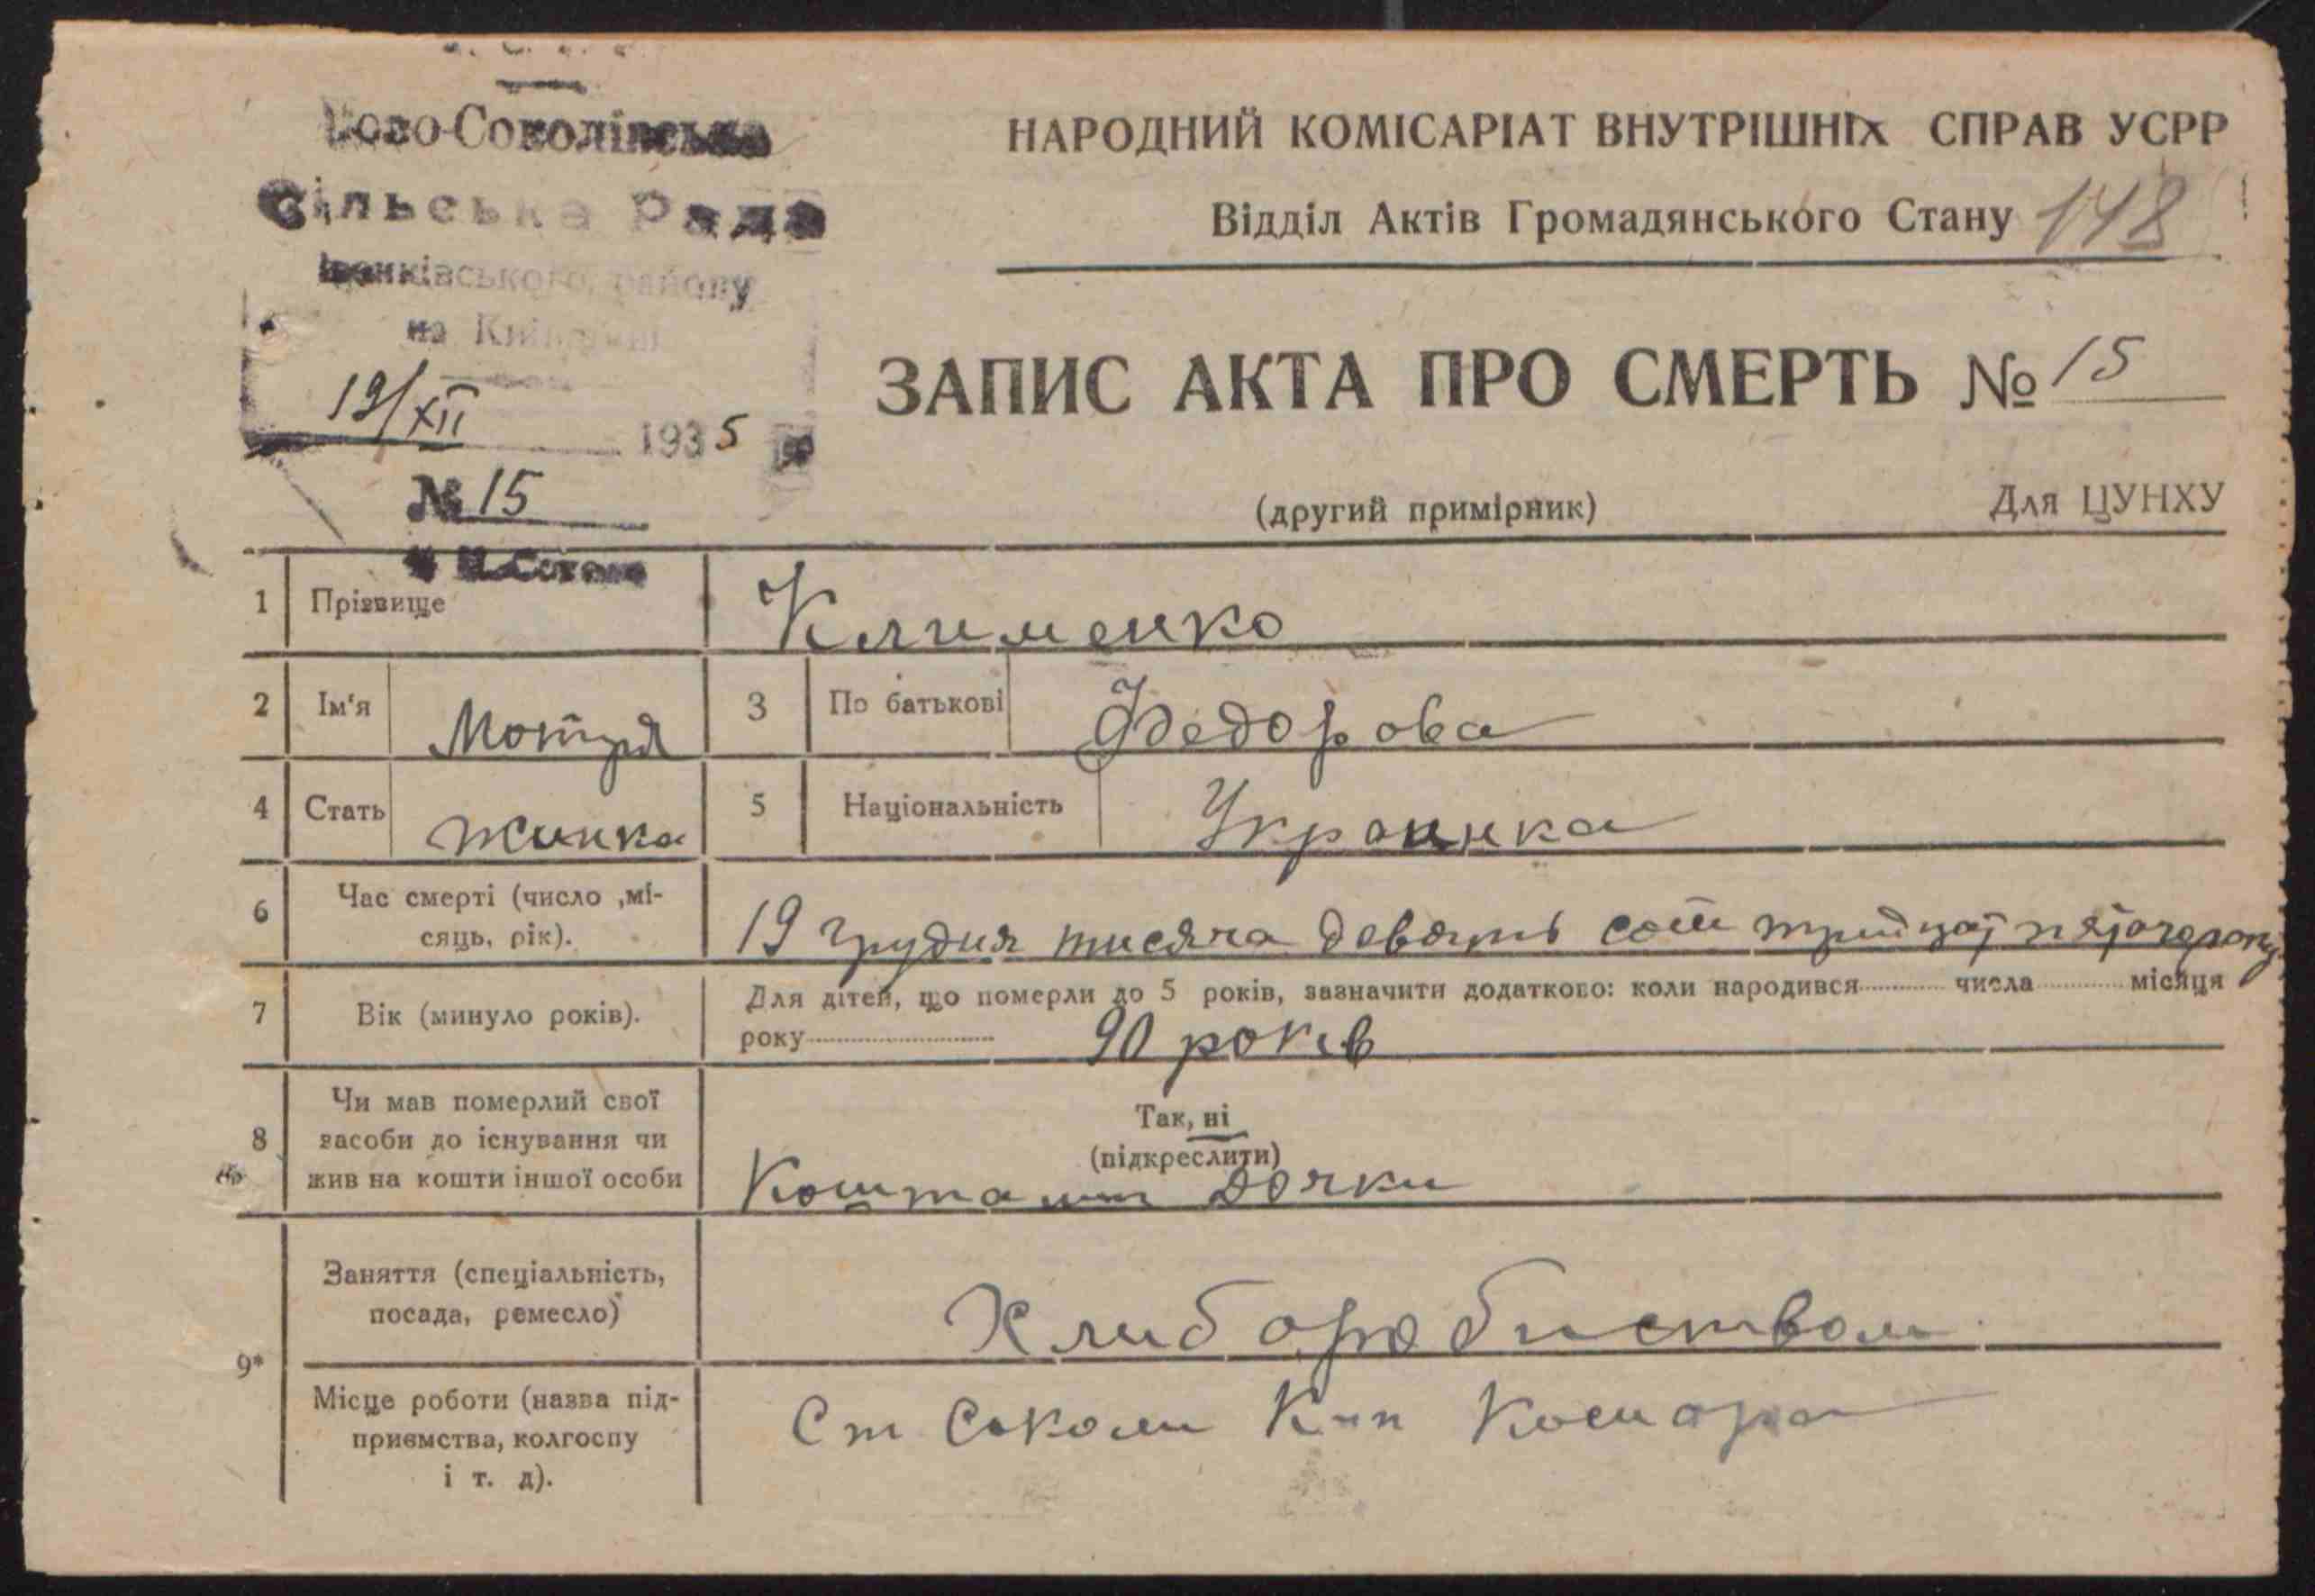 У. С. Р. Р.
Ново-Соколівська
Сільська Рада
Іванківського району
на Київщині
19/XII 1935 р
№ 15
НАРОДНИЙ КОМІСАРІАТ ВНУТРІШНІХ СПРАВ УСРР
Відділ Актів Громадянського Стану 148
ЗАПИС АКТА ПРО СМЕРТЬ № 15
(другий примірник) Для ЦУНХУ
1 Прізвище Клименко
2 Ім'я Мотря 3 По батькові Федорова
4 Стать Жинка 5 Національність Украинка
6 Час смерті (число ,мі-
сяць, рік). 19 грудня тисяча девять сот тридцат пятого року
7 Вік (минуло років). Для дітей, що померли до 5 років, зазначити додатково: коли народився числа місяця
року 90 років
8 Чи мав померлий свої
засоби до існування чи
жив на кошти іншої особи
Так, ні
(підкреслити)
Коштами дочки
9* Заняття (спеціальність,
посада, ремесло) Хлиборобиством
Місце роботи (назва під-
приємства, колгоспу
і т. д).
Ст Соколи